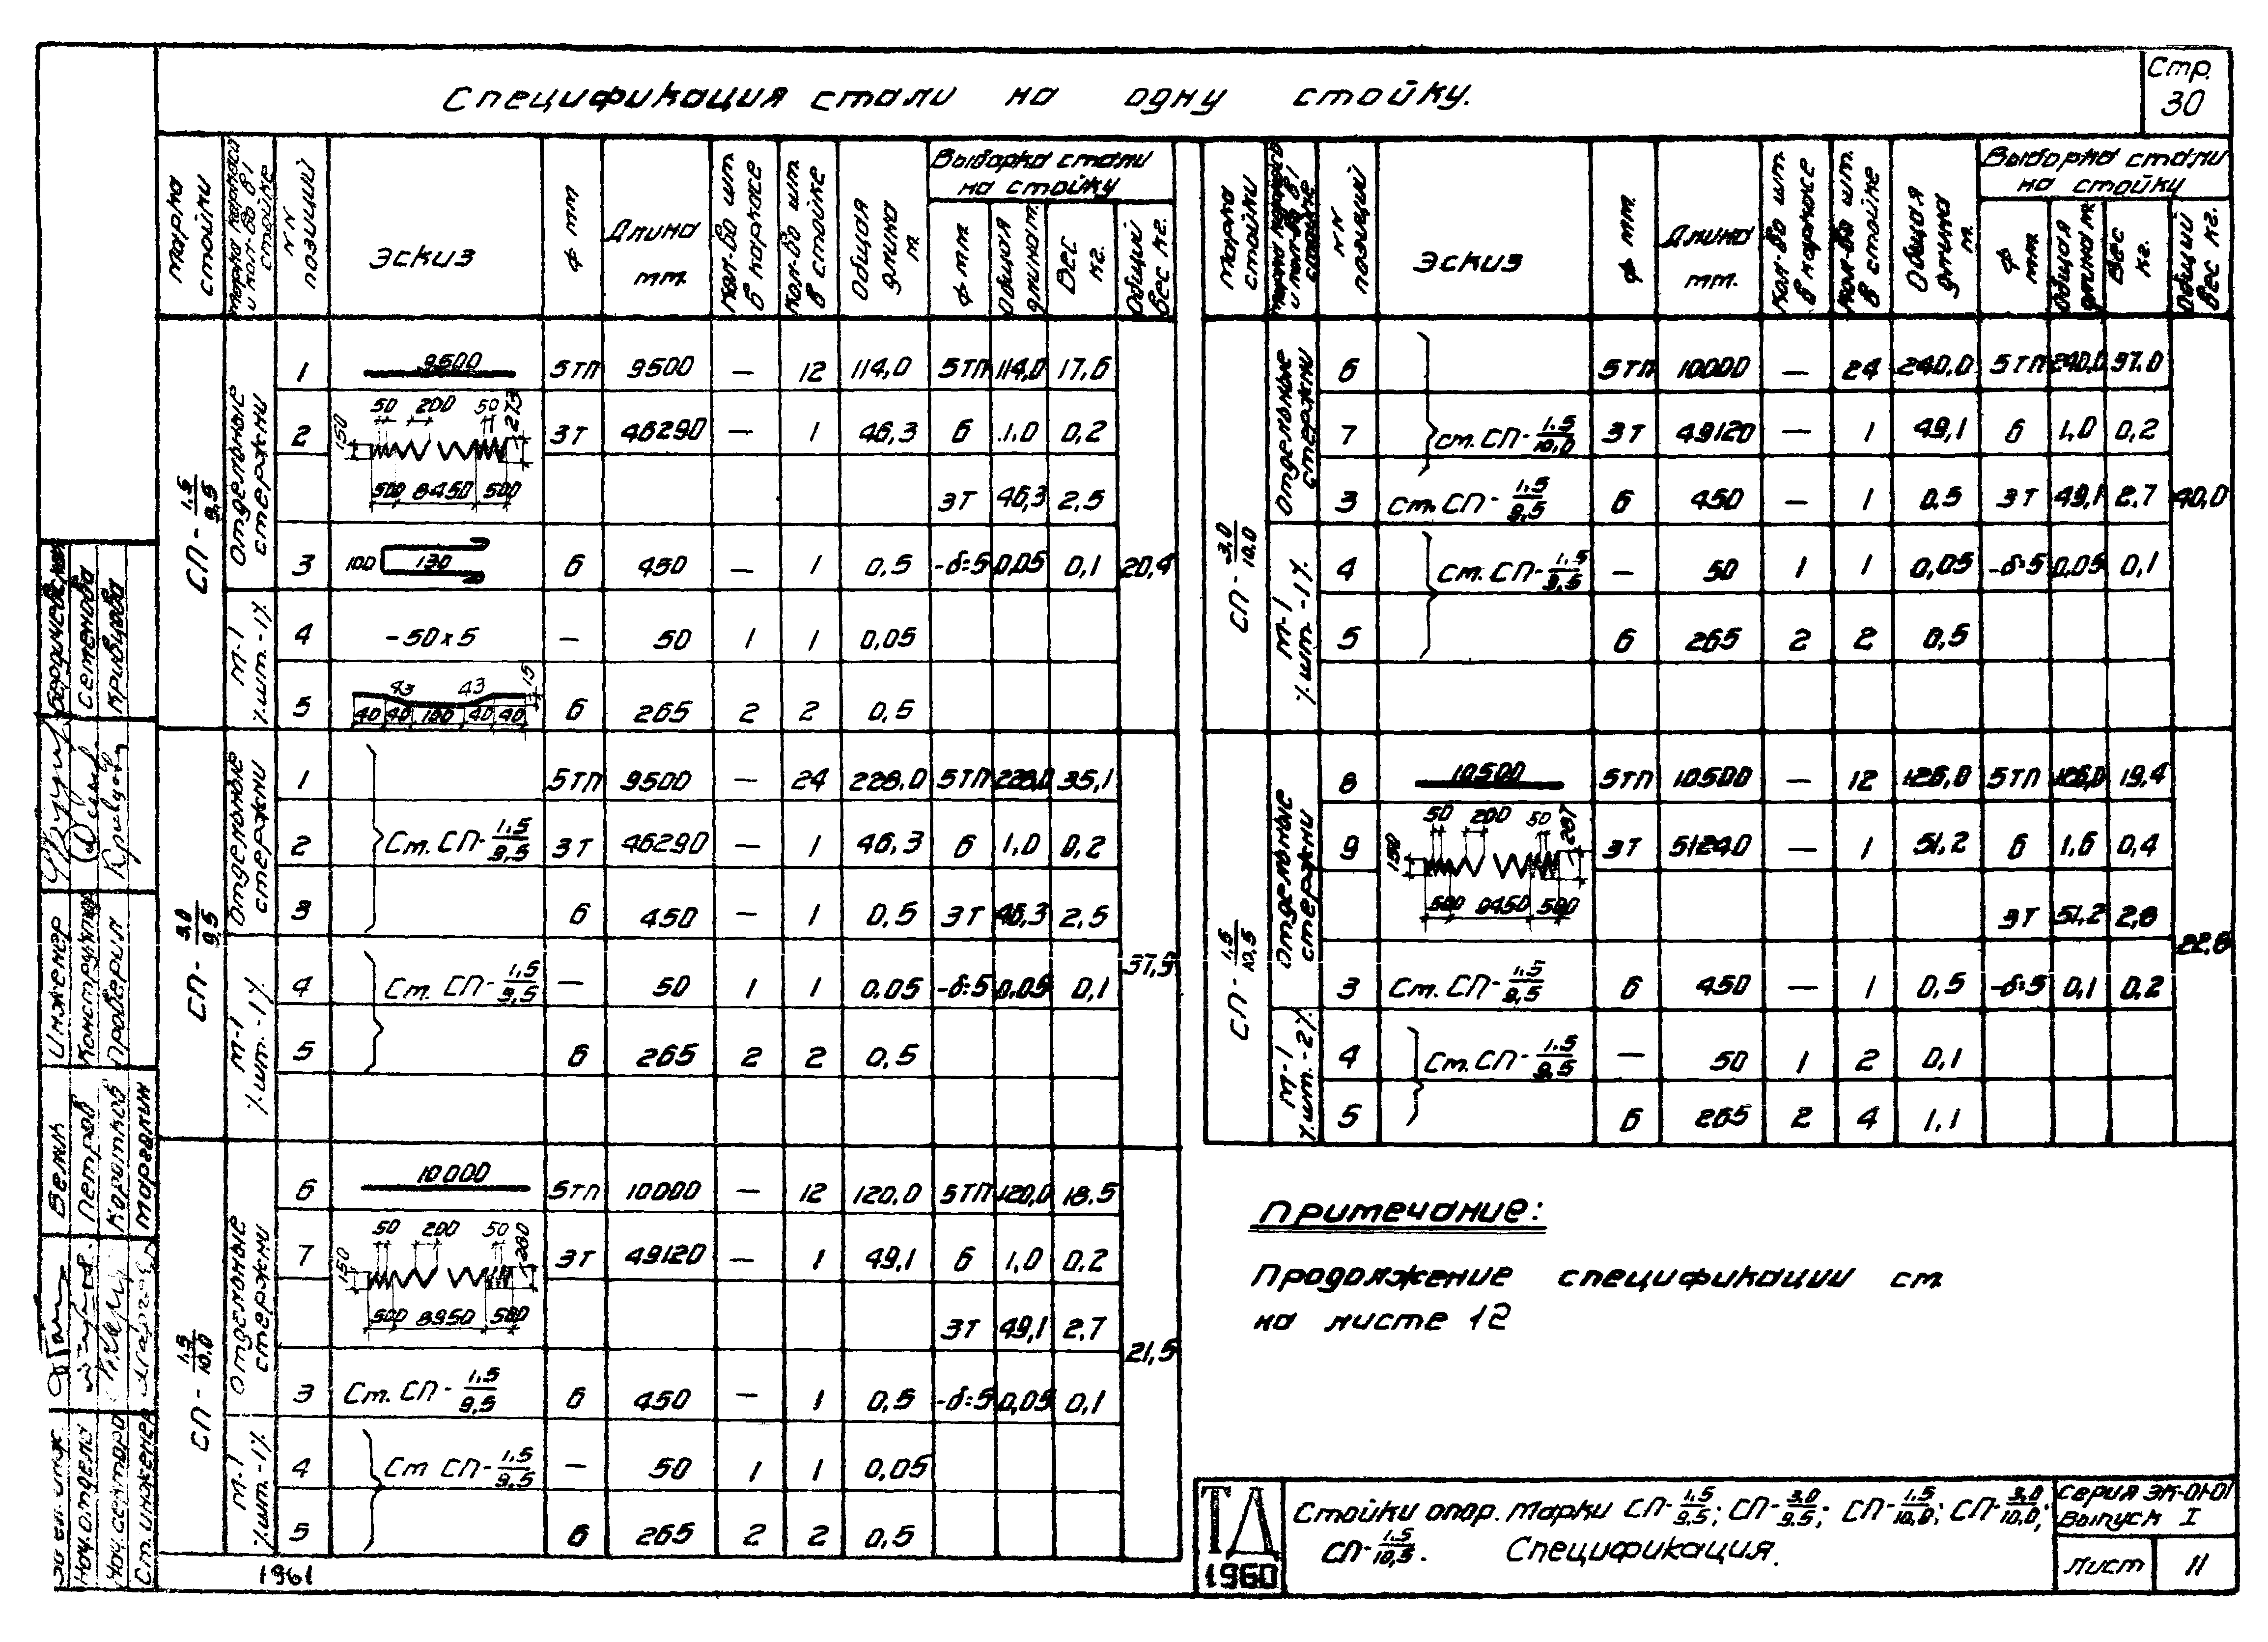 Стр. 30
Спецификация стали на одну стойку.
Марка стойки | Марка каркаса и кол-во в 1 стойке | NN позиций | Эскиз | ф мм | Длина мм. | Кол-во шт. в каркасе | Кол-во шт. в стойке | Общая длина м | Выборка стали на стойку | ф мм | Общая длина м. | Вес кг. | Общий вес кг.
СП-1,5/9,5 | Отдельные стержни | 20,4
1 | 9500 | 5ТП | 9500 | — | 12 | 114,0 | 5ТП | 114,0 | 17,6
2 | 150 50 200 50 275 500 8450 500 | 3Т | 46290 | — | 1 | 46,3 | 6 | 1,0 | 0,2
3Т | 46,3 | 2,5
3 | 100 130 | 6 | 450 | — | 1 | 0,5 | -δ=5 | 0,05 | 0,1
М-1 шт.-1
4 | -50х5 | — | 50 | 1 | 1 | 0,05
5 | 43 43 15 40 40 100 40 40 | 6 | 265 | 2 | 2 | 0,5
СП-3,0/9,5 | Отдельные стержни | 37,9
1 | 5ТП | 9500 | — | 24 | 228,0 | 5ТП | 228,0 | 35,1
2 | Ст. СП-1,5/9,5 | 3Т | 46290 | — | 1 | 46,3 | 6 | 1,0 | 0,2
3 | 6 | 450 | — | 1 | 0,5 | 3Т | 46,3 | 2,5
М-1 шт.-1
4 | Ст. СП-1,5/9,5 | — | 50 | 1 | 1 | 0.05 | -δ=5 | 0.05 | 0,1
5 | 6 | 265 | 2 | 2 | 0,5
СП-1,5/10,0 | Отдельные стержни | 21,5
6 | 10000 | 5ТП | 10000 | — | 12 | 120,0 | 5ТП | 120,0 | 18.5
7 | 150 50 200 50 280 500 8950 500 | 3Т | 49120 | — | 1 | 49,1 | 6 | 1,0 | 0.2
3Т | 49,1 | 2.7
3 | Ст. СП-1,5/9,5 | 6 | 450 | — | 1 | 0,5 | -δ=5 | 0,05 | 0,1
М-1 шт.-1
4 | Ст СП-1,5/9,5 | — | 50 | 1 | 1 | 0,05
5 | 6 | 265 | 2 | 2 | 0,5
1961
Марка стойки | Марка каркаса и кол-во в 1 стойке | NN позиций | Эскиз | ф мм. | Длина мм. | Кол-во шт. в каркасе | Кол-во шт. в стойке | Общая длина м. | Выборка стали на стойку | ф мм. | Общая длина м. | Вес кг. | Общий вес кг.
СП-3,0/10,0 | Отдельные стержни | 40,0
6 | 5ТП | 10000 | — | 24 | 240,0 | 5ТП | 240,0 | 37.0
7 | ст. СП-1.5/10,0 | 3Т | 49120 | — | 1 | 49,1 | 6 | 1,0 | 0,2
3 | Ст. СП-1,5/9,5 | 6 | 450 | — | 1 | 0,5 | 3Т | 49,1 | 2.7
М-1 шт.-1
4 | Ст. СП-1,5/9,5 | — | 50 | 1 | 1 | 0,05 | -δ=5 | 0,05 | 0,1
5 | 6 | 265 | 2 | 2 | 0,5
СП-1,5/10,5 | Отдельные стержни | 22.8
8 | 10500 | 5ТП | 10500 | — | 12 | 126,0 | 5ТП | 126,0 | 19,4
9 | 150 50 200 50 267 500 9450 500 | 3Т | 51240 | — | 1 | 51,2 | 6 | 1,6 | 0,4
3Т | 51,2 | 2,8
3 | Ст. СП-1,5/9,5 | 6 | 450 | — | 1 | 0,5 | -δ=5 | 0,1 | 0.2
М-1 шт.-2
4 | Ст. СП-1.5/9,5 | — | 50 | 1 | 2 | 0,1
5 | 6 | 265 | 2 | 4 | 1,1
Примечание:
Продолжение спецификации см.
на листе 12
ТД 1960
Стойки опор. Марки СП-1,5/9,5; СП-3,0/9,5; СП-1,5/10,0; СП-3,0/10,0;
СП-1,5/10,5. Спецификация.
Серия ЭК-01-01
Выпуск I
Лист 11
Инженер
Конструктор Семенова
Проверил Кривцова
Нач. отдела Петров
Нач. сектора Коротков
Ст. инженер Марголин